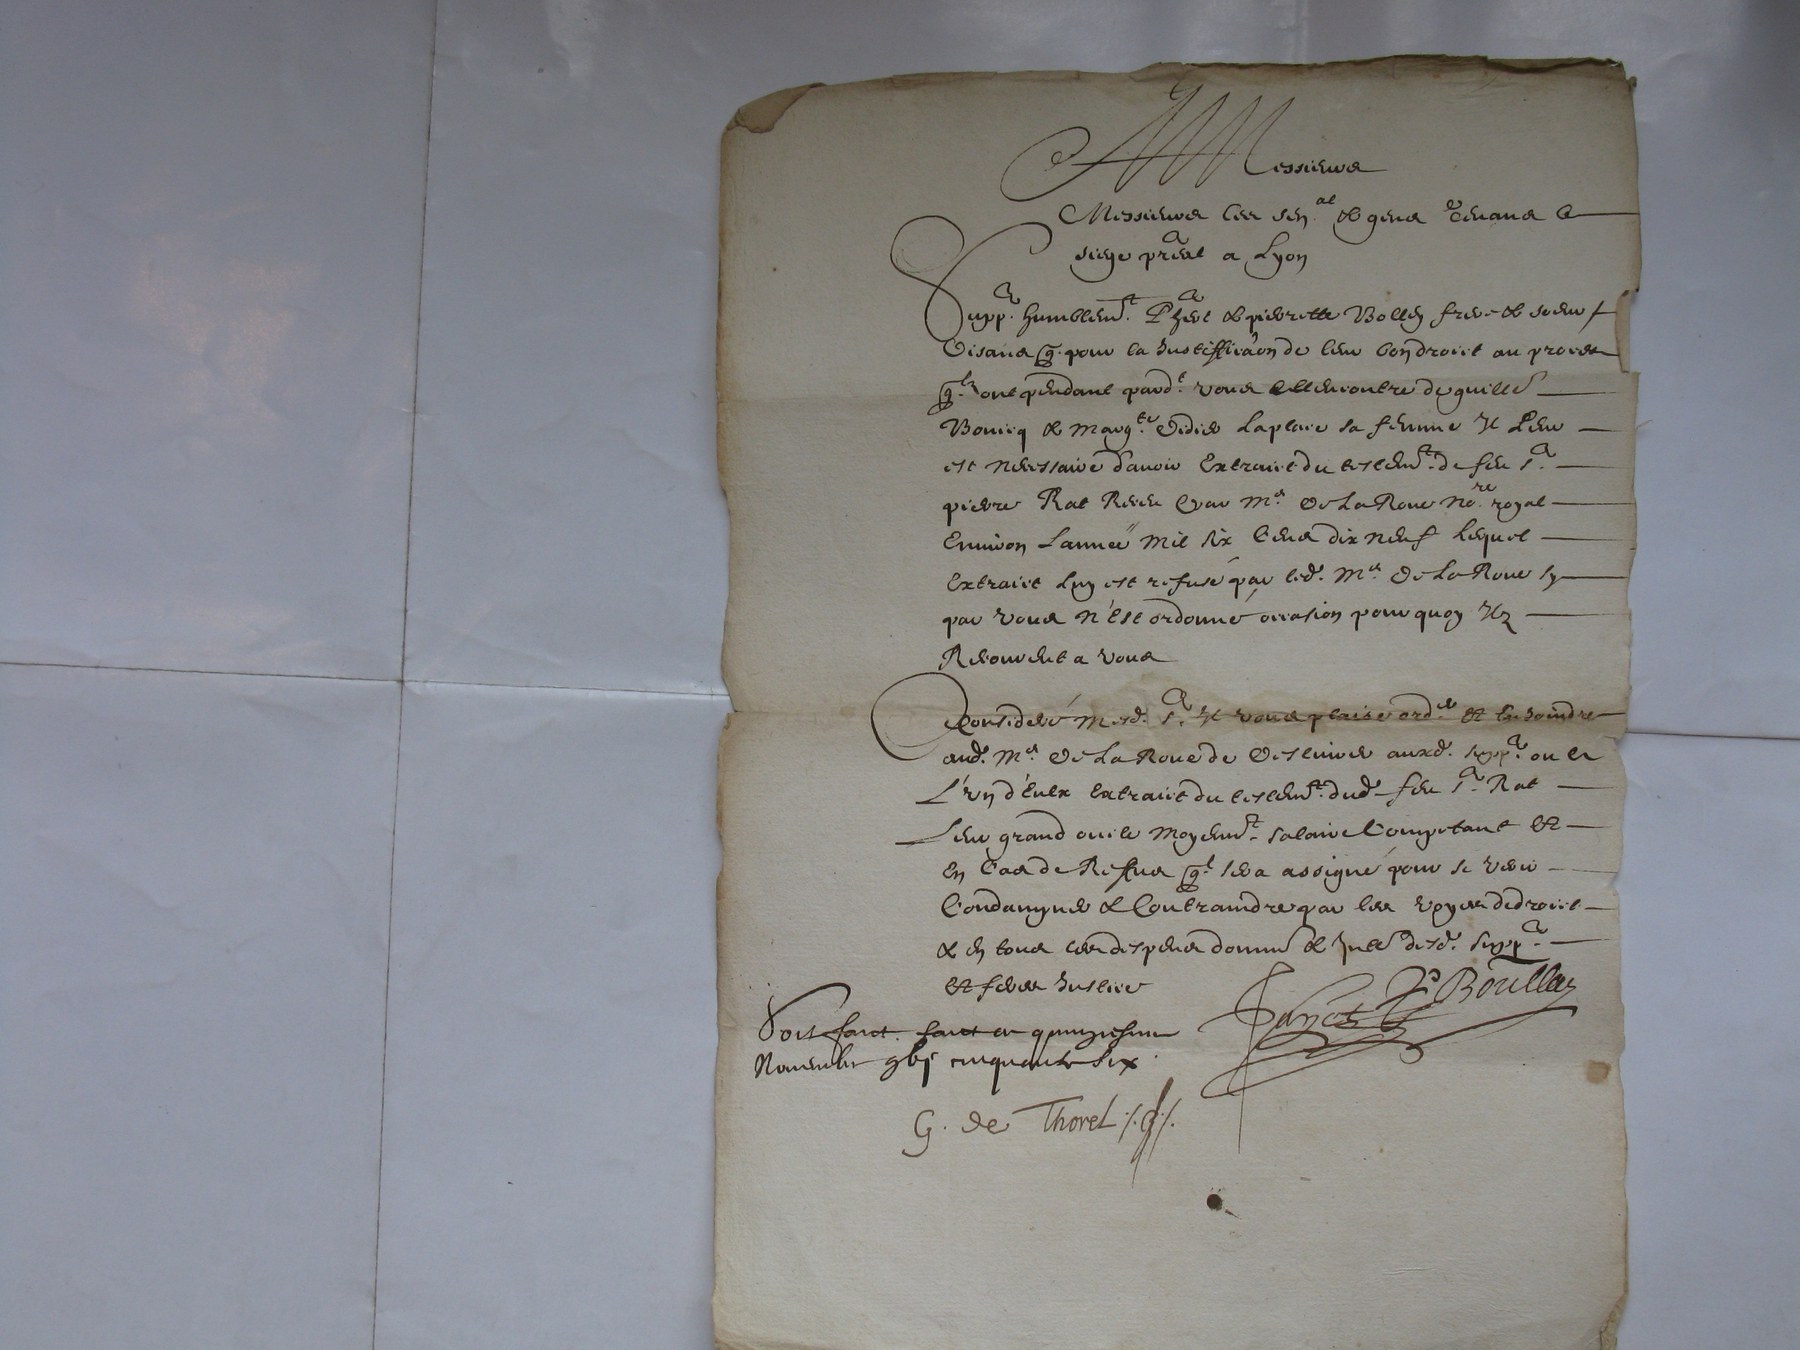 A Messieurs
Messieurs les sen.al & gens tenans le
siege pnal a Lyon
Supp. humblemt. & pierrette Bollez frere & soeur
disans q. pour la Justiffica͠on de leur bon droict au proces
qlz ont pendant pard.t vous allencontre de guille
Bouicq & Marg.te Didier Laplace sa femme Il Leur
est necessaire d'avoir Extraict du testemt. de feu sr.
pierre Rat Receu par Me. De La Roue No.re royal
Environ L'annee mil six Cens dix neuf Lequel
Extraict Luy est refusé par led. Me. De La Roue sy
par vous n'est ordonné occasion pourquoy Ilz
Recourent a vous
Consideré Mesd. srs. Il vous plaise ord.er Et En Joindre
aud. Me. De La Roue de Deslivrer auxd. supp. ou a
L'un d'Eulx Extraict du testemt. dud. feu sr. Rat
Leur grand oncle moyent. salaire Competant Et
En Cas de Reffus ql. sera assigné pour se veoir
Condampner & Contraindre par les voyes de droict
& en tous les despens domm. & Intt. desd. supp.
Et feres Justice
Boullaz
Soit faict. faict ce quinziesme
Novembre xvj cinquante six
G. de Thorel